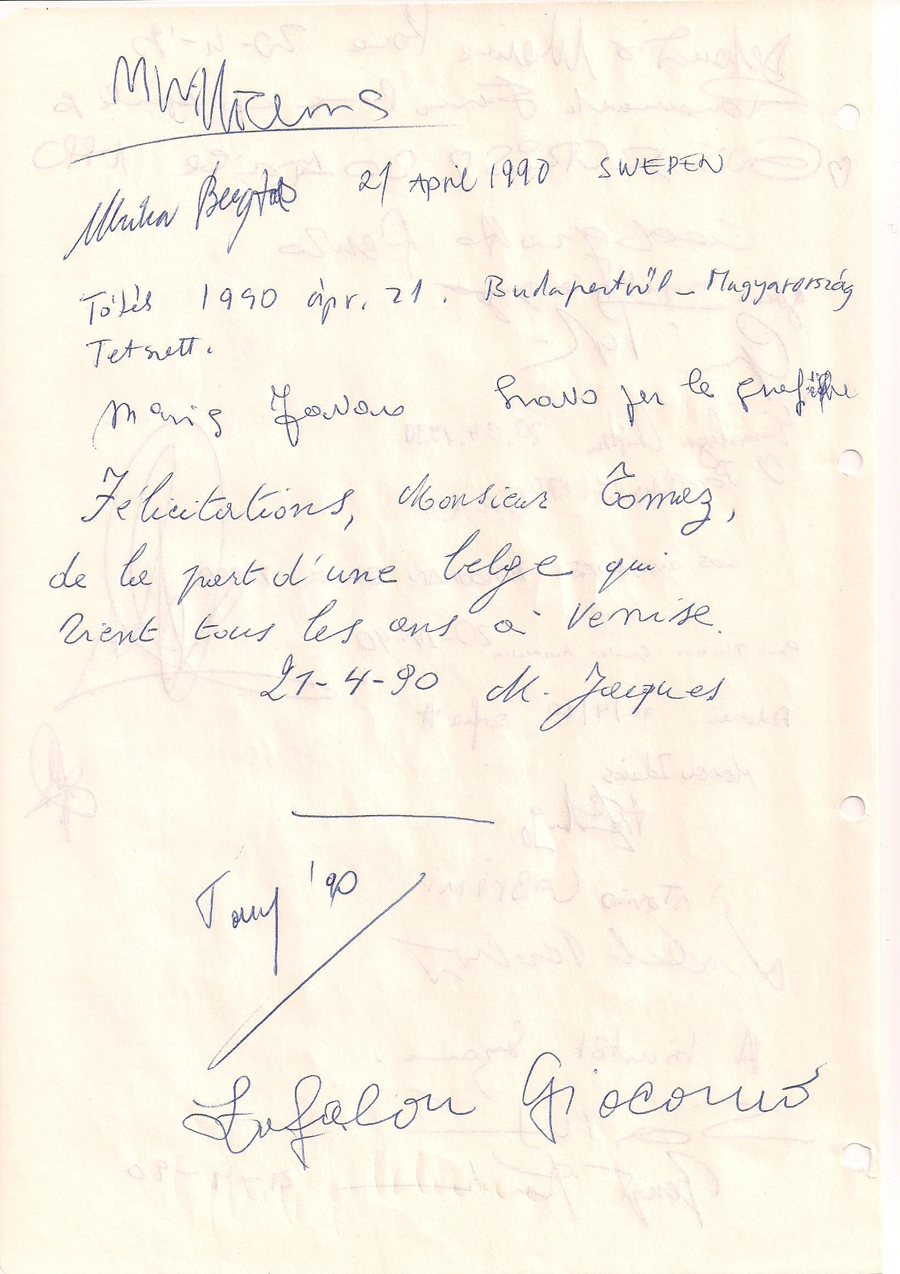 MWilliams
Ulrika 21 April 1990 SWEDEN
1990 ápr. 21. Budapestről – Magyarország
Tetszett.
Maria bravo per le
Félicitations, Monsieur Tomaz,
de la part d'une belge qui
vient tous les ans à Venise.
21-4-90 M. Jacques
Tony '90
Zufalon Giacomo